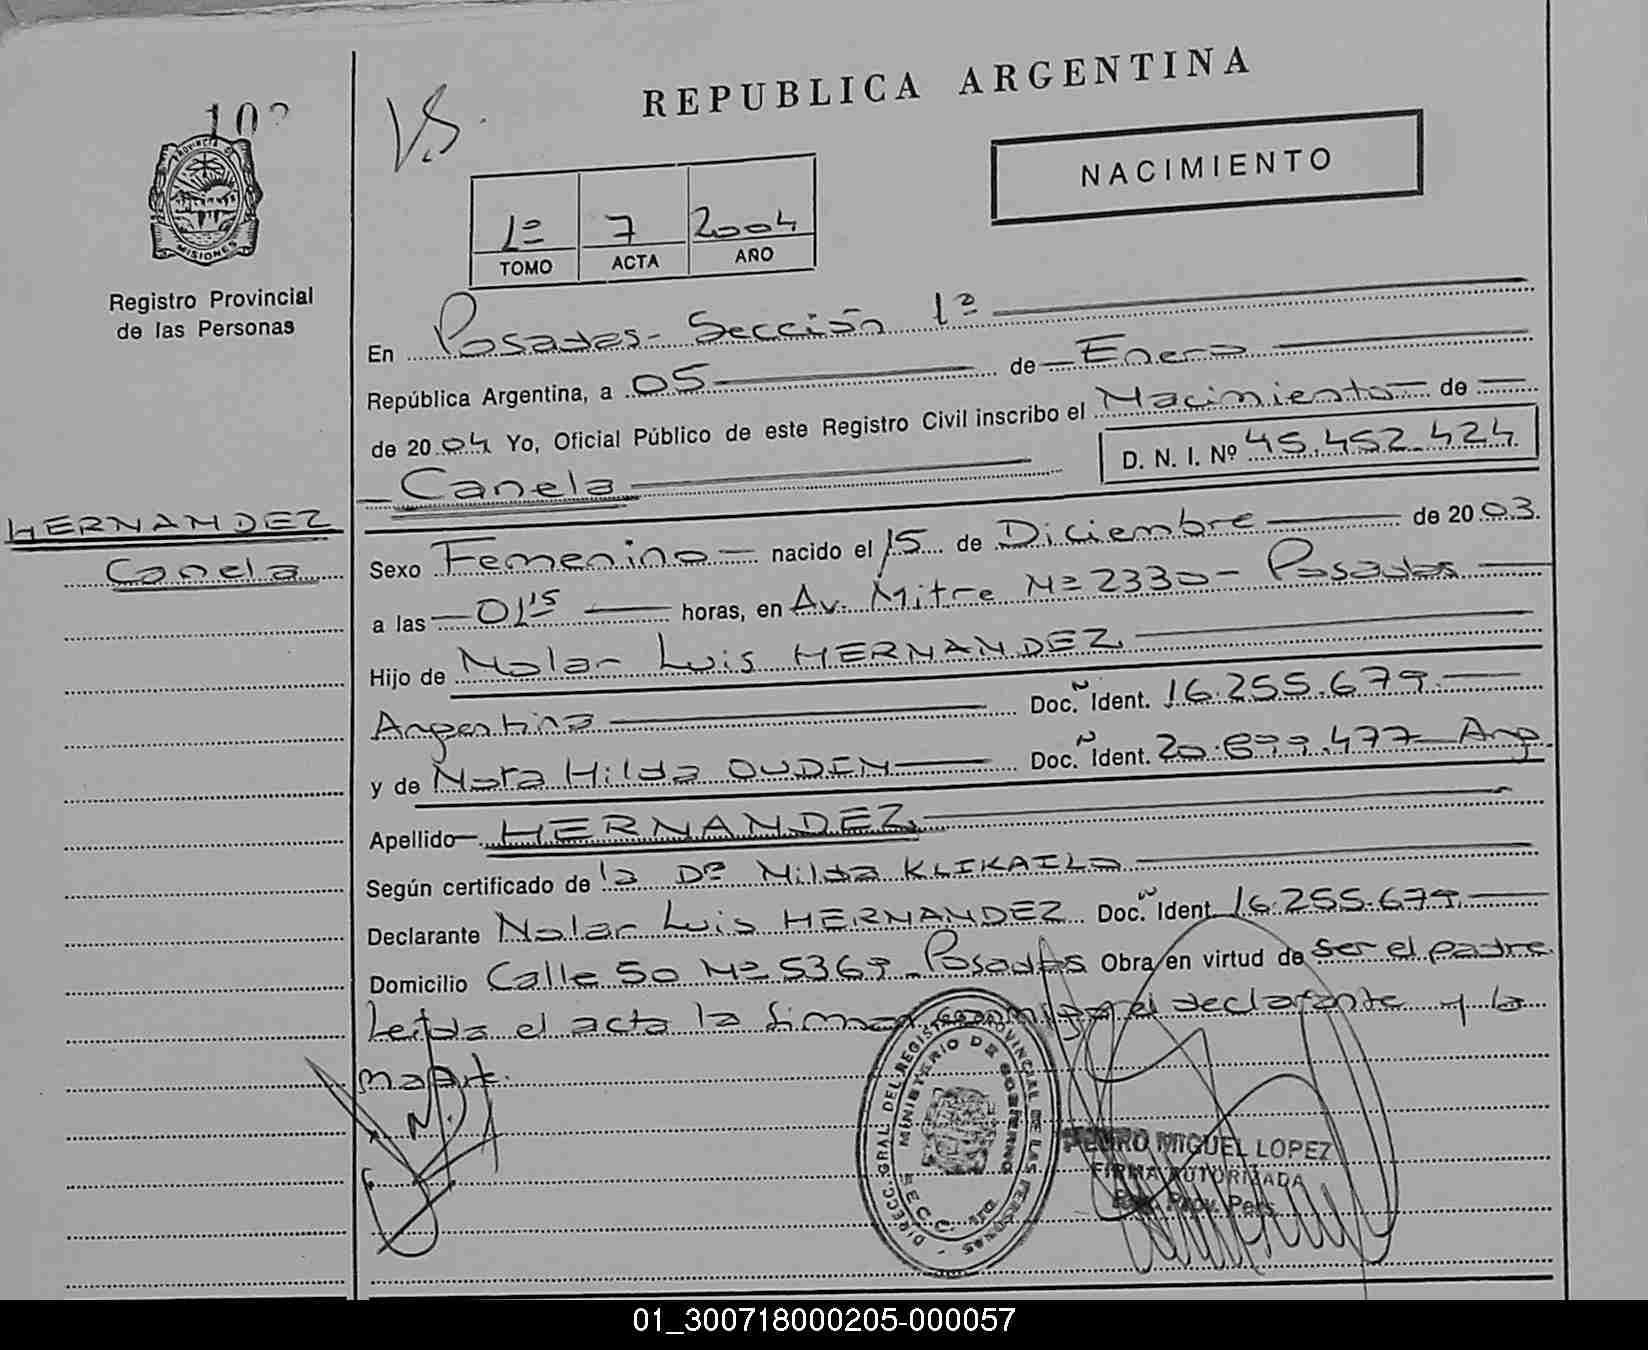 REPUBLICA ARGENTINA
V.S.
NACIMIENTO
PROVINCIA DE
MISIONES
Registro Provincial
de las Personas
1º 7 2004
TOMO ACTA AÑO
En Posadas - Sección 1ª
República Argentina, a 05 de Enero
de 2004 Yo, Oficial Público de este Registro Civil inscribo el Nacimiento de
Canela D. N. I. Nº 45.452.424
HERNANDEZ
Canela
Sexo Femenino nacido el 15 de Diciembre de 2003.
a las 01 15 horas, en Av. Mitre Nº 2330 - Posadas
Hijo de Nolar Luis HERNANDEZ
Argentina Doc. Ident. 16.255.679
y de Nora Hilda OUDIN Doc. Ident. 20.699.477 Arg.
Apellido HERNANDEZ
Según certificado de la Dª Nilda
Declarante Nolar Luis HERNANDEZ Doc. Ident. 16.255.679
Domicilio Calle 50 Nº 5369 - Posadas Obra en virtud de ser el padre
Leída el acta la firman conmigo el declarante y la
madre.
DIRECC. GRAL. DEL REGISTRO PROVINCIAL DE LAS PERSONAS
MINISTERIO DE GOBIERNO
PEDRO MIGUEL LOPEZ
FIRMA AUTORIZADA
Reg. Prov. Pers.
01_300718000205-000057